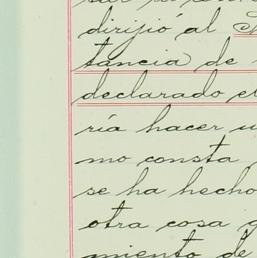 dirijió al
tancia de
declarado e
ría hacer u
mo consta
se ha hecho
otra cosa
miento de